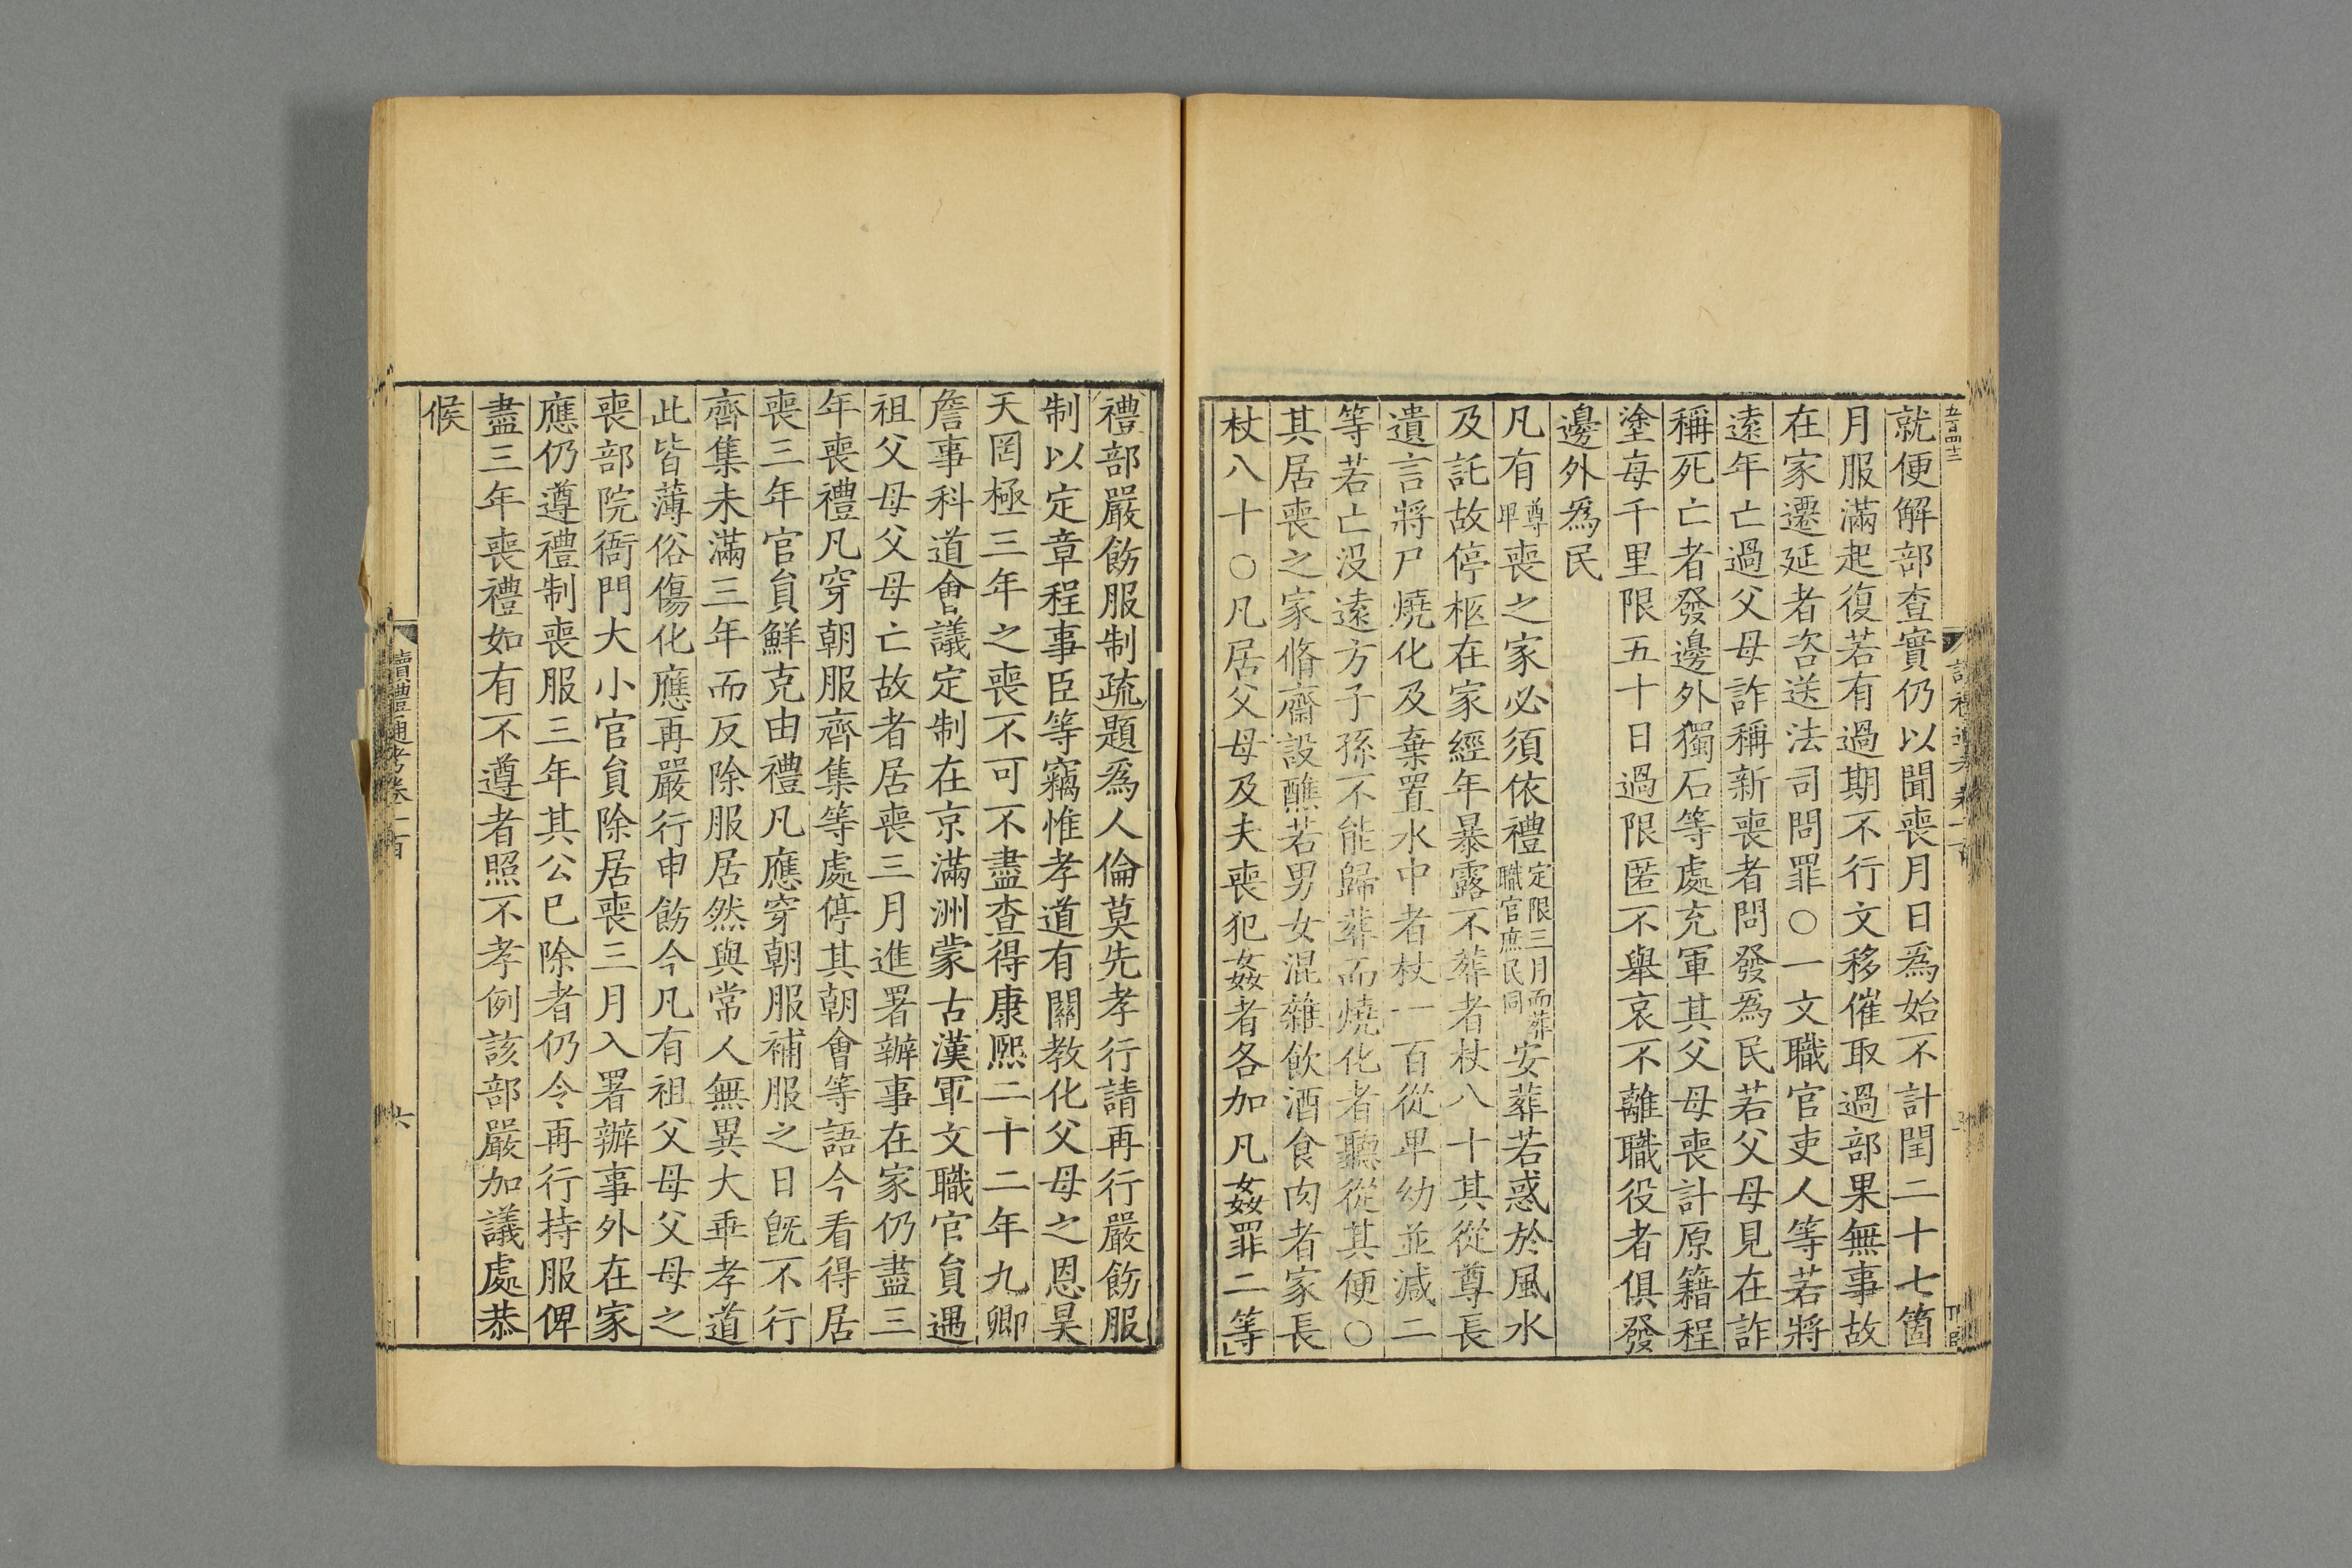 就便解部查實仍以聞喪月日爲始不計閏二十七箇
月服滿起復若有過期不行文移催取過部果無事故
在家遷延者咨送法司問罪○一文職官吏人等若將
遠年亡過父母詐稱新喪者問發爲民若父母見在詐
稱死亡者發邊外獨石等處充軍其父母喪計原籍程
塗每千里限五十日過限匿不舉哀不離職役者俱發
邊外爲民
凡有尊卑喪之家必須依禮定限三月而葬職官庶民同安葬若惑於風水
及託故停柩在家經年暴露不葬者杖八十其從尊長
遺言將尸燒化及棄置水中者杖一百從卑幼並減二
等若亡没遠方子孫不能歸葬而燒化者聽從其便○
其居喪之家脩齋設醮若男女混雜飲酒食肉者家長
杖八十○凡居父母及夫喪犯姦者各加凡姦罪二等
禮部嚴飭服制疏題爲人倫莫先孝行請再行嚴飭服
制以定章程事臣等竊惟孝道有關教化父母之恩昊
天罔極三年之喪不可不盡查得康熙二十二年九卿
詹事科道會議定制在京滿洲蒙古漢軍文職官員遇
祖父母父母亡故者居喪三月進署辦事在家仍盡三
年喪禮凡穿朝服齊集等處停其朝會等語今看得居
喪三年官員鮮克由禮凡應穿朝服補服之日旣不行
齊集未滿三年而反除服居然與常人無異大乖孝道
此皆薄俗傷化應再嚴行申飭今凡有祖父母父母之
喪部院衙門大小官員除居喪三月入署辦事外在家
應仍遵禮制喪服三年其公已除者仍令再行持服俾
盡三年喪禮如有不遵者照不孝例該部嚴加議處恭
候
讀禮通考卷一百
六